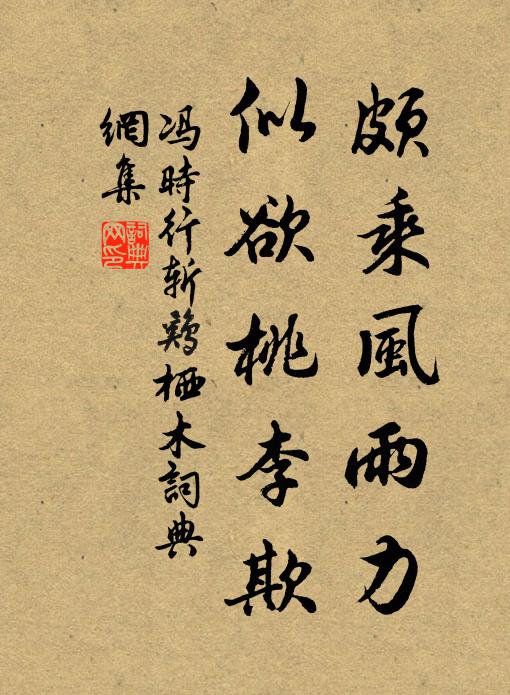 頗乘風雨力
似欲桃李欺
馮時行斬鷄栖木詞典
網集
詞典
网印